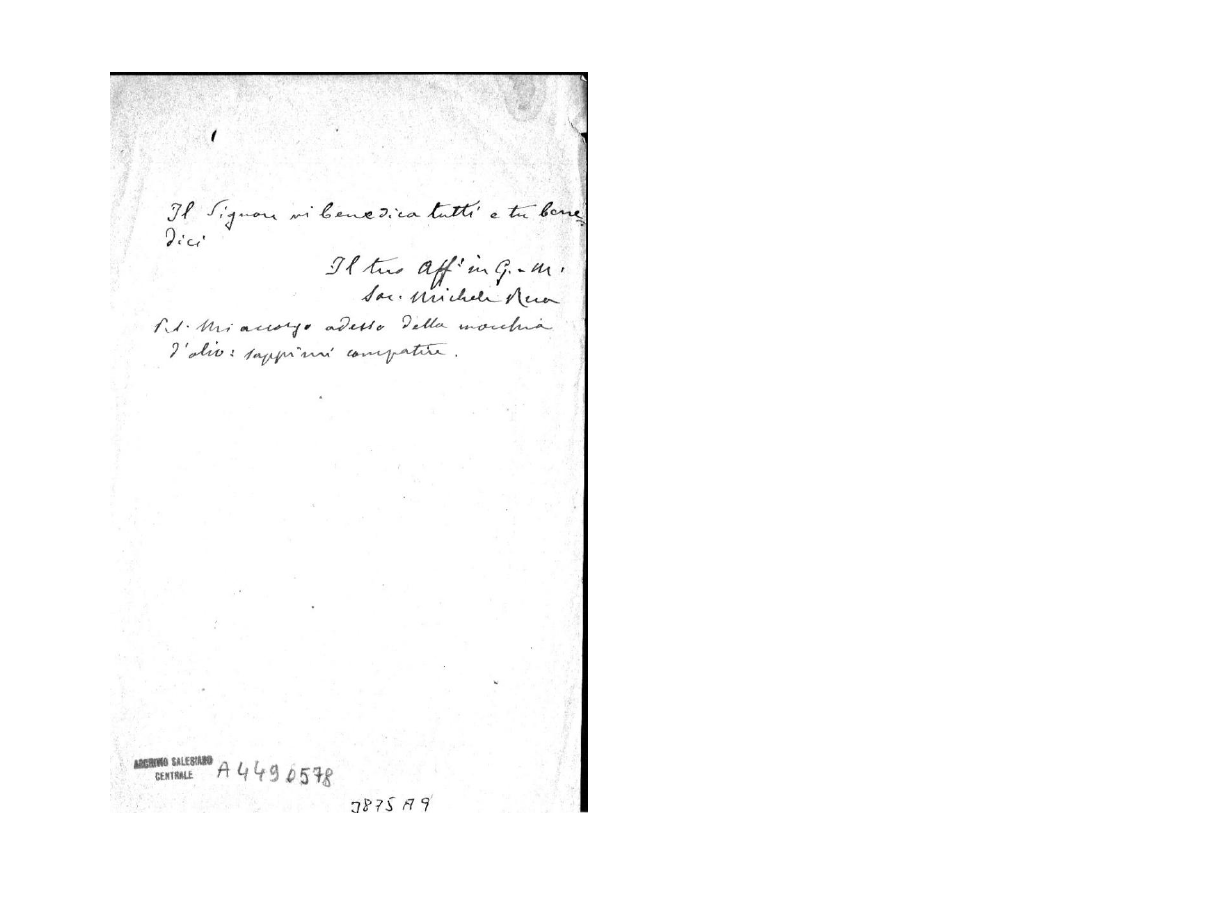 Il Signore vi benedica tutti e tu bene=
dici
Il tuo Aff: in G. - M.
Sac. Michele Rua
P.S. Mi accorgo adesso della macchia
d'olio: sappimi compatire.
ARCHIVIO SALESIANO
CENTRALE
A4490578
3875 A 9